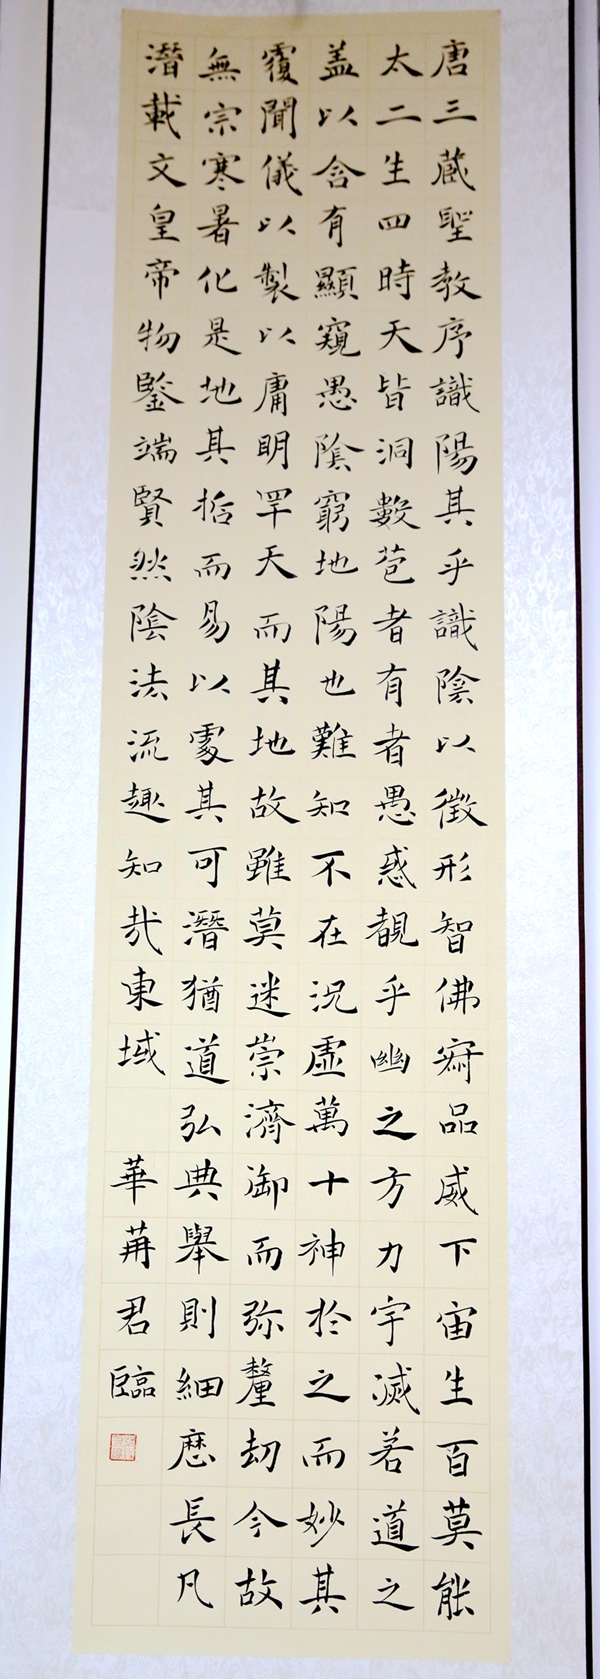 唐三藏聖教序識陽其乎識陰以徵形智佛寂品威下宙生百莫能
太二生四時天皆洞數苞者有者愚惑覩乎幽之方力宇滅若道之
盖以含有顯窺愚陰窮地陽也難知不在況虛萬十神於之而妙其
覆聞儀以製以庸明罕天而其地故雖莫迷崇濟御而弥釐劫今故
無宗寒暑化是地其哲而易以處其可潛猶道弘典舉則細歷長凡
潛載文皇帝物鑒端賢然陰法流趣知哉東域
華苒君臨